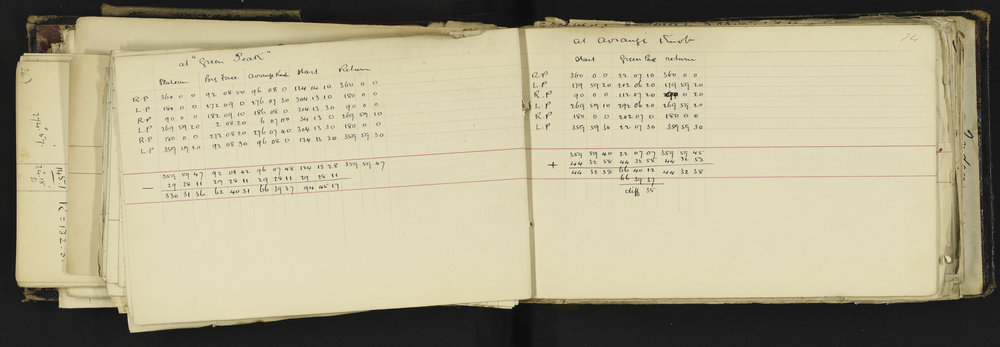 at "Green Peak"
Plateau Big Face Arrange Knob Start Return
R.P 360 0 0 92 08 50 96 08 0 124 14 10 360 0 0
L.P 180 0 0 272 09 0 276 07 30 304 13 10 180 0 0
R.P 90 0 0 182 09 10 186 08 0 214 13 30 90 0 0
L.P 269 59 20 2 08 20 6 07 00 34 13 0 269 59 10
R.P 180 0 0 272 08 20 276 07 40 304 13 30 180 0 0
L.P 359 59 20 92 08 30 96 08 0 124 12 30 359 59 30
359 59 47 92 08 42 96 07 48 124 13 28 359 59 47
- 29 28 11 29 28 11 29 28 11 29 28 11
330 31 36 62 40 31 66 39 37 94 45 17
at Arrange Knob
74
Start Green Peak return
R.P 360 0 0 22 07 10 360 0 0
L.P 179 59 20 202 06 20 179 59 20
R.P 90 0 0 112 07 20 90 0 0
L.P 269 59 10 292 06 20 269 59 20
R.P 180 0 0 202 07 0 180 0 0
L.P 359 59 30 22 07 30 359 59 30
359 59 40 22 07 07 359 59 45
+ 44 32 58 44 32 58 44 32 53
44 32 38 66 40 12 44 32 38
66 39 37
diff 35